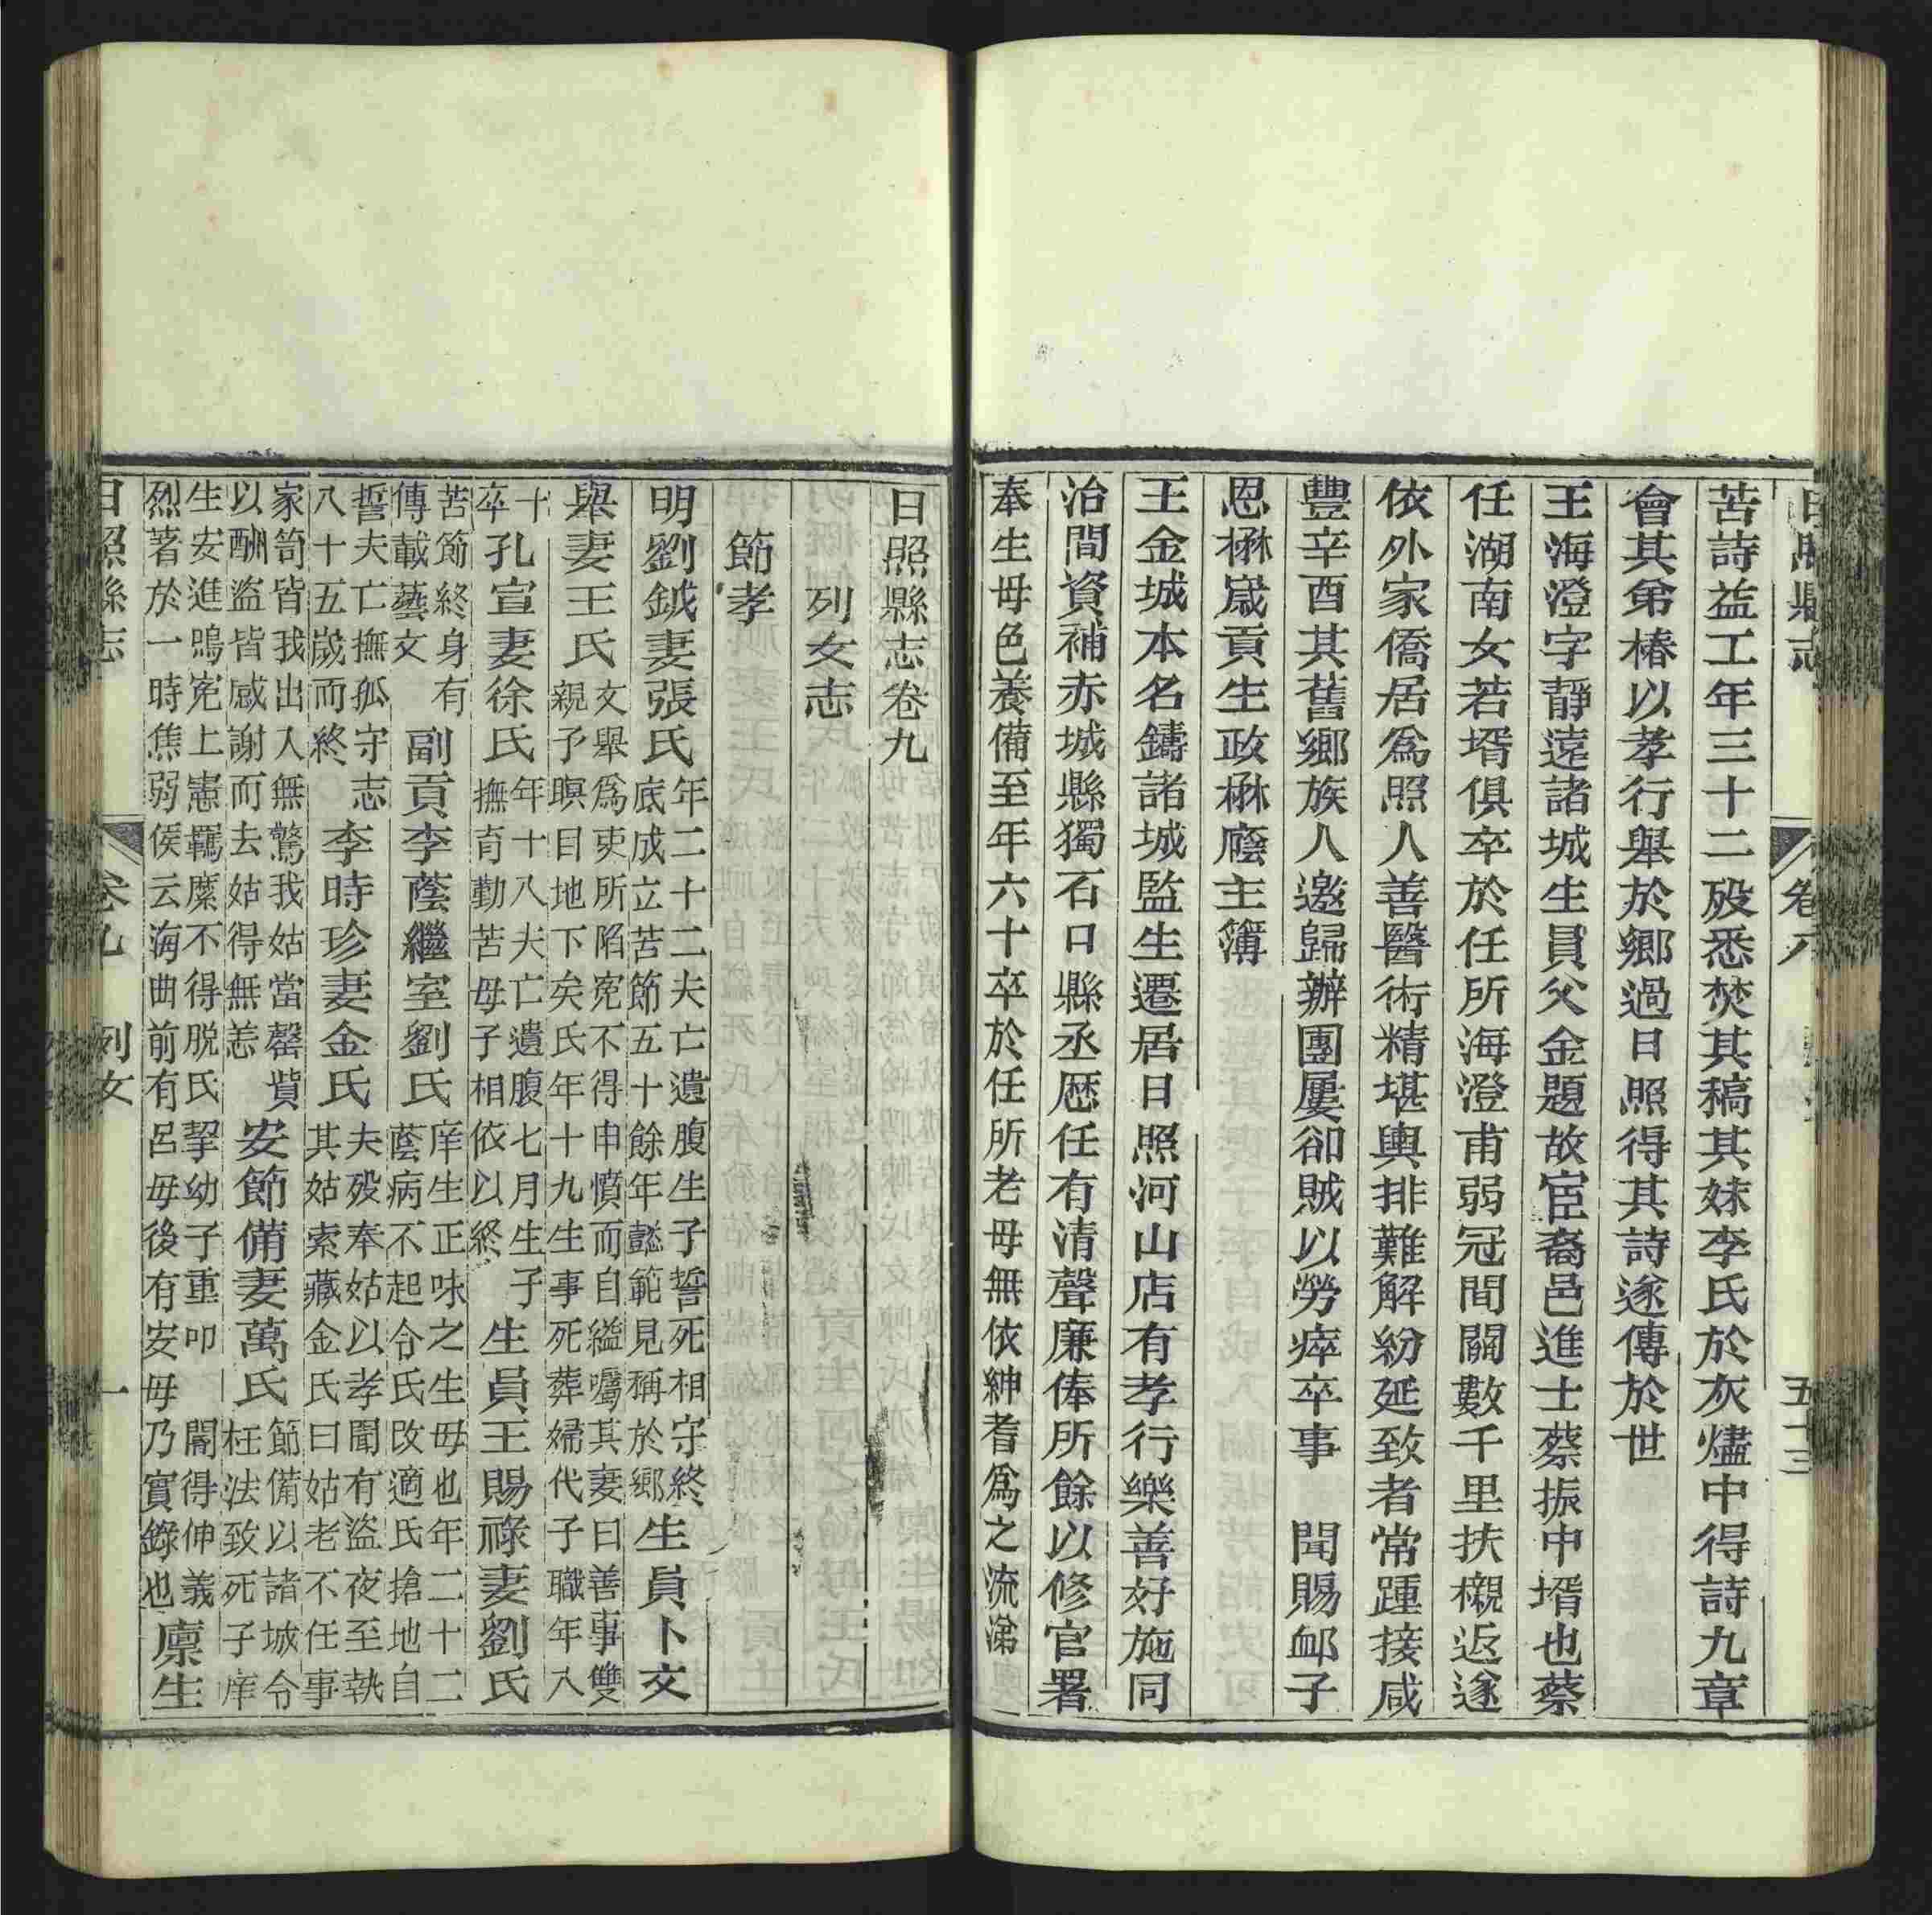 日照縣志 卷八 五十三
苦詩益工年三十二歿悉焚其稿其妹李氏於灰燼中得詩九章
會其弟椿以孝行舉於鄉過日照得其詩遂傳於世
王海澄字靜遠諸城生員父金題故宦裔邑進士蔡振中壻也蔡
任湖南女若壻俱卒於任所海澄甫弱冠間關數千里扶櫬返遂
依外家僑居爲照人善醫術精堪輿排難解紛延致者常踵接咸
豐辛酉其舊鄉族人邀歸辦團屢卻賊以勞瘁卒事 聞賜卹子
恩楙歲貢生政楙廕主簿
王金城本名鑄諸城監生遷居日照河山店有孝行樂善好施同
治間資補赤城縣獨石口縣丞歷任有清聲廉俸所餘以修官署
奉生母色養備至年六十卒於任所老母無依紳耆爲之流涕
日照縣志卷九
列女志
節孝
明劉鉞妻張氏年二十二夫亡遺腹生子誓死相守終
底成立苦節五十餘年懿範見稱於鄉生員卜文
舉妻王氏文舉爲吏所陷寃不得申憤而自縊囑其妻曰善事雙
親予瞑目地下矣氏年十九生事死葬婦代子職年八
十
卒孔宣妻徐氏年十八夫亡遺腹七月生子
撫育勤苦母子相依以終生員王賜祿妻劉氏
苦節終身有
傳載藝文副貢李蔭繼室劉氏庠生正味之生母也年二十二
蔭病不起令氏改適氏搶地自
誓夫亡撫孤守志
八十五歲而終李時珍妻金氏夫歿奉姑以孝聞有盜夜至執
其姑索藏金氏曰姑老不任事
家笥皆我出入無驚我姑當罄貲
以酬盜皆感謝而去姑得無恙安節備妻萬氏節備以諸城令
枉法致死子庠
生安進鳴寃上憲羈縻不得脱氏挈幼子重叩 閽得伸義
烈著於一時焦弱侯云海曲前有呂母後有安母乃實錄也廩生
日照縣志 卷九 列女 一